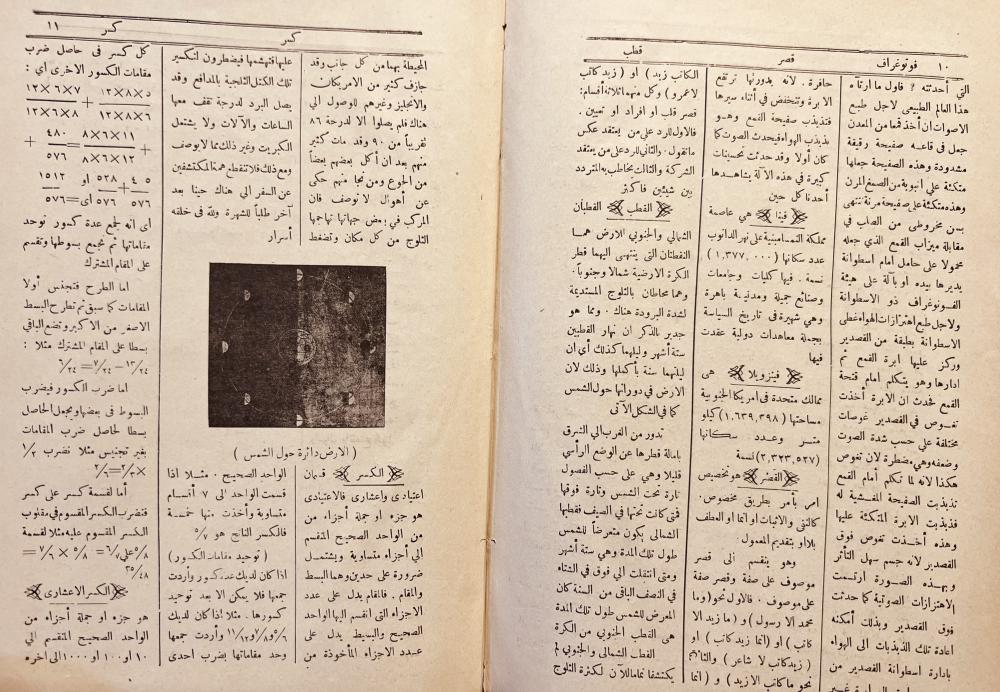 ١٠
فوتوغراف
قصر
قطب
التى أحدثته ? فاول ما ارتآه
هذا العالم الطبيعى لاجل طبع
الاصوات ان أخذ قمعا من المعدن
جعل فى قاعـه صفيحة رقيقة
مشدودة وهذه الصفيحة جعلها
متكئة على انبوبة من الصمغ المرن
وهذه متكئة على صفيحة مرنة تنتهى
بسن مخروطى من الصلب فى
مقابلة ميزاب القمع الذى جعله
محمولا على حامل امام اسطوانة
يديرها بيده أو بآلة على هيئة
الفـونوغراف ذو الاسطوانة
ولاجل طبع اهتزازات الهواء غطى
الاسطوانة بطبقة من القصدير
وركز عليها ابرة القمع ثم
ادارها وهو يتكلم امام فتحة
القمع فحدث ان الابرة أخذت
تغـوص فى القصدير غوصات
مختلفة على حسب شدة الصوت
وضعفه وهى مضطرة لان تغوص
هكذا لانه لما تكلم أمام القمع
تذبذبت الصفيحة المغشية له
فذبذبت الابرة المتكئة عليها
وهذه أخـذت تغوص فوق
القصدير لانه جسم سهل التأثر
وبهـذه الصـورة ارتسمت
الاهتزازات الصوتية كما حدثت
فوق القصدير وبذلك أمكنه
اعادة تلك الذبذبات الى الهواء
بادارة اسطوانة القصدير من
حافرة. لانه بدورتها ترتفع
الابرة وتنخفض فى أثناء سيرها
فتذبذب صفيحة القمع وهـو
يذبذب الهواء فيحدث الصوت كما
كان أولا وقد حدثت تحسينات
كبيرة فى هذه الآلة يشاهـدها
أحدنا كل حين
﴿ فينا ﴾ هى عاصمة
مملكة النمسا مبنية على نهر الدانوب
عدد سكانها (١،٣٧٧،٠٠٠)
نسمة. فيها كليات وجامعات
وصنائع جميلة ومدنيـة باهرة
وهى شهيرة فى تاريخ السياسة
بجملة معاهدات دولية عقدت
فيها
﴿ فينزويلا ﴾ هى
ممالك متحدة فى امريكا الجنوبية
مساحتها (١،٦٣٩،٣٩٨) كيلو
متر وعـدد سكـانها
(٢،٣٢٣،٥٢٧) نسمة
﴿ القصر ﴾ هو تخصيص
امر بأمر بطريق مخصوص.
كالنفى والاثبات او انما او العطف
بلا او بتقديم المعمول.
وهو ينقسم الى قصر
موصوف على صفة وقصر صفة
على موصوف. فالاول نحو (وما
محمد الا رسول) و (ما زيد الا
كاتب) او (انما زيد كاتب) او
(زيد كاتب لا شاعر) والثانى
نحو ما كاتب الا زيد) و (انما
الكاتب زيد) او (زيد كاتب
لا عمرو) وكل منهما ثلاثة أقسام:
قصر قلب او افراد او تعيين.
فالاول للرد على من يعتقد عكس
ما تقول. والثانى للرد على من يعتقد
الشركة والثالث يخاطب به المتردد
بين شيئين فاكثر
﴿ القطب ﴾ القطبان
الشمالى والجنوبى الارض هما
النقطتان التى ينتهى اليهما قطر
الكرة الارضية شمالا وجنوباً.
وهما محاطان بالثلوج المستديمة
لشدة البرودة هناك. ومما هو
جدير بالذكر ان نهار القطبين
ستة أشهر وليلهما كذلك أى ان
ليلتهما سنة بأكملها وذلك لان
الارض فى دورانها حول الشمس
كما فى الشكل الآتى
تدور من الغرب الى الشرق
بامالة قطرها عن الوضع الرأسى
قليلا وهى على حسب الفصول
تارة تحت الشمس وتارة فوقها
فتى كانت تحتها فى الصيف فقطبها
الشمالى يكون متعرضاً للشمس
طول تلك المدة وهى ستة أشهر
ومتى انتقلت الى فوق فى الشتاء
فى النصف الباقى من السنة كان
المعرض للشمس طول تلك المدة
هى القطب الجنوبى من الكرة
القطب الشمالى والجنوبى لم
يكتشفا تماما للآن لكثرة الثلوج
كسر
كسر
١١
المحيطة بهما من كل جانب وقد
جازف كثير من الامريكان
والانجليز وغيرهم للوصول الى
هناك فلم يصلوا الا لدرجة ٨٦
تقريباً من ٩٠ وقد مات كثير
منهم بعد ان أكل بعضهم بعضاً
من الجوع ومن نجا منهم حكى
عن أهوال لا توصف فان
المركب فى بعض جهاتها تهاجمها
الثلوج من كل مكان وتضغط
عليها فتهشمها فيضطرون لتكسير
تلك الكتل الثلجية بالمدافع وقد
يصل البرد لدرجة تقف معها
الساعات والآلات ولا يشتعل
الكبريت وغير ذلك مما لا يوصف
ومع ذلك فلا تنقطع همة المكتشفين
عن السفر الى هناك حينا بعد
آخر طلباً للشهرة ولله فى خلقه
أسرار
( الارض دائرة حول الشمس )
﴿ الكسر ﴾ قسمان
اعتيادى واعشارى فالاعتيادى
هو جزء او جملة أجزاء من
من الواحد الصحيح المنقسم
الى أجزاء متساوية ويشتمل
ضرورة على حدين وهما البسط
والمقام. فالمقام يدل على عدد
الاجزاء التى انقسم اليها الواحد
الصحيح والبسيط يدل على
عـدد الاجزاء المأخوذة من
الواحد الصحيح. مثـلا اذا
قسمت الواحد الى ٧ أقسام
متساوية وأخذت منها خمسة
فالكسر الناتج هو ٥/٧
(توحيد مقامات الكسور)
اذا كان لديك عدة كسور وأردت
جمعها فلا يمكن الا بعد توحيد
كسورها. مثلا اذا كان لديك
٥/٦ و ٧/٨ و ١١/١٢ وأردت جمعها
وحد مقاماتها بضرب احدى
كل كسر فى حاصل ضرب
مقامات الكسور الاخرى أى:
٥×٨×١٢/٦×٨×١٢ + ٧×٦×١٢/٨×٦×١٢
+ ١١×٦×٨/١٢×٦×٨ = ٤٨٠/٥٧٦ +
٥٠٤/٥٧٦ + ٥٢٨/٥٧٦ أى = ١٥١٢/٥٧٦
اى انه لجمع عدة كسور توحد
مقاماتها ثم تجمع بسوطها وتقسم
على المقام المشترك
اما الطرح فتجنس أولا
المقامات كما سبق ثم تطرح البسط
الاصغر من الاكبر وتضع الباقى
بسطا على المقام المشترك مثلا:
١٣/٢٤ − ٧/٢٤ = ٦/٢٤
اما ضرب الكسور فيضرب
البسوط فى بعضها ويجعل الحاصل
بسطا لحاصل ضرب المقامات
بغير تجنيس مثلا نضرب ١/٢
أما لقسمة كسر على كسر
فتضرب الكسر المقسوم فى مقلوب
الكسر المقسوم عليه مثلا لقسمة
٥/٨ على ٦/٧ = ٥/٨ × ٧/٦ =
٣٥/٤٨
﴿ الكسر الاعشارى ﴾
هو جزء او جملة أجزاء من
الواحد الصحيح المنقسم الى
١٠ او ١٠٠ او ١٠٠٠ الى آخره